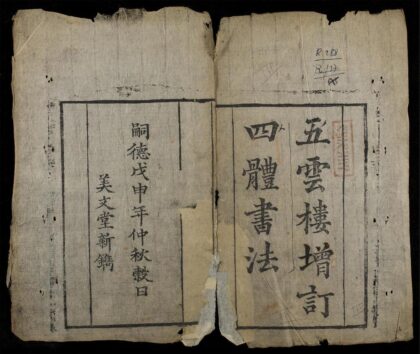 五雲樓增訂
四體書法
嗣德戊申年仲秋穀日
美文堂新鐫